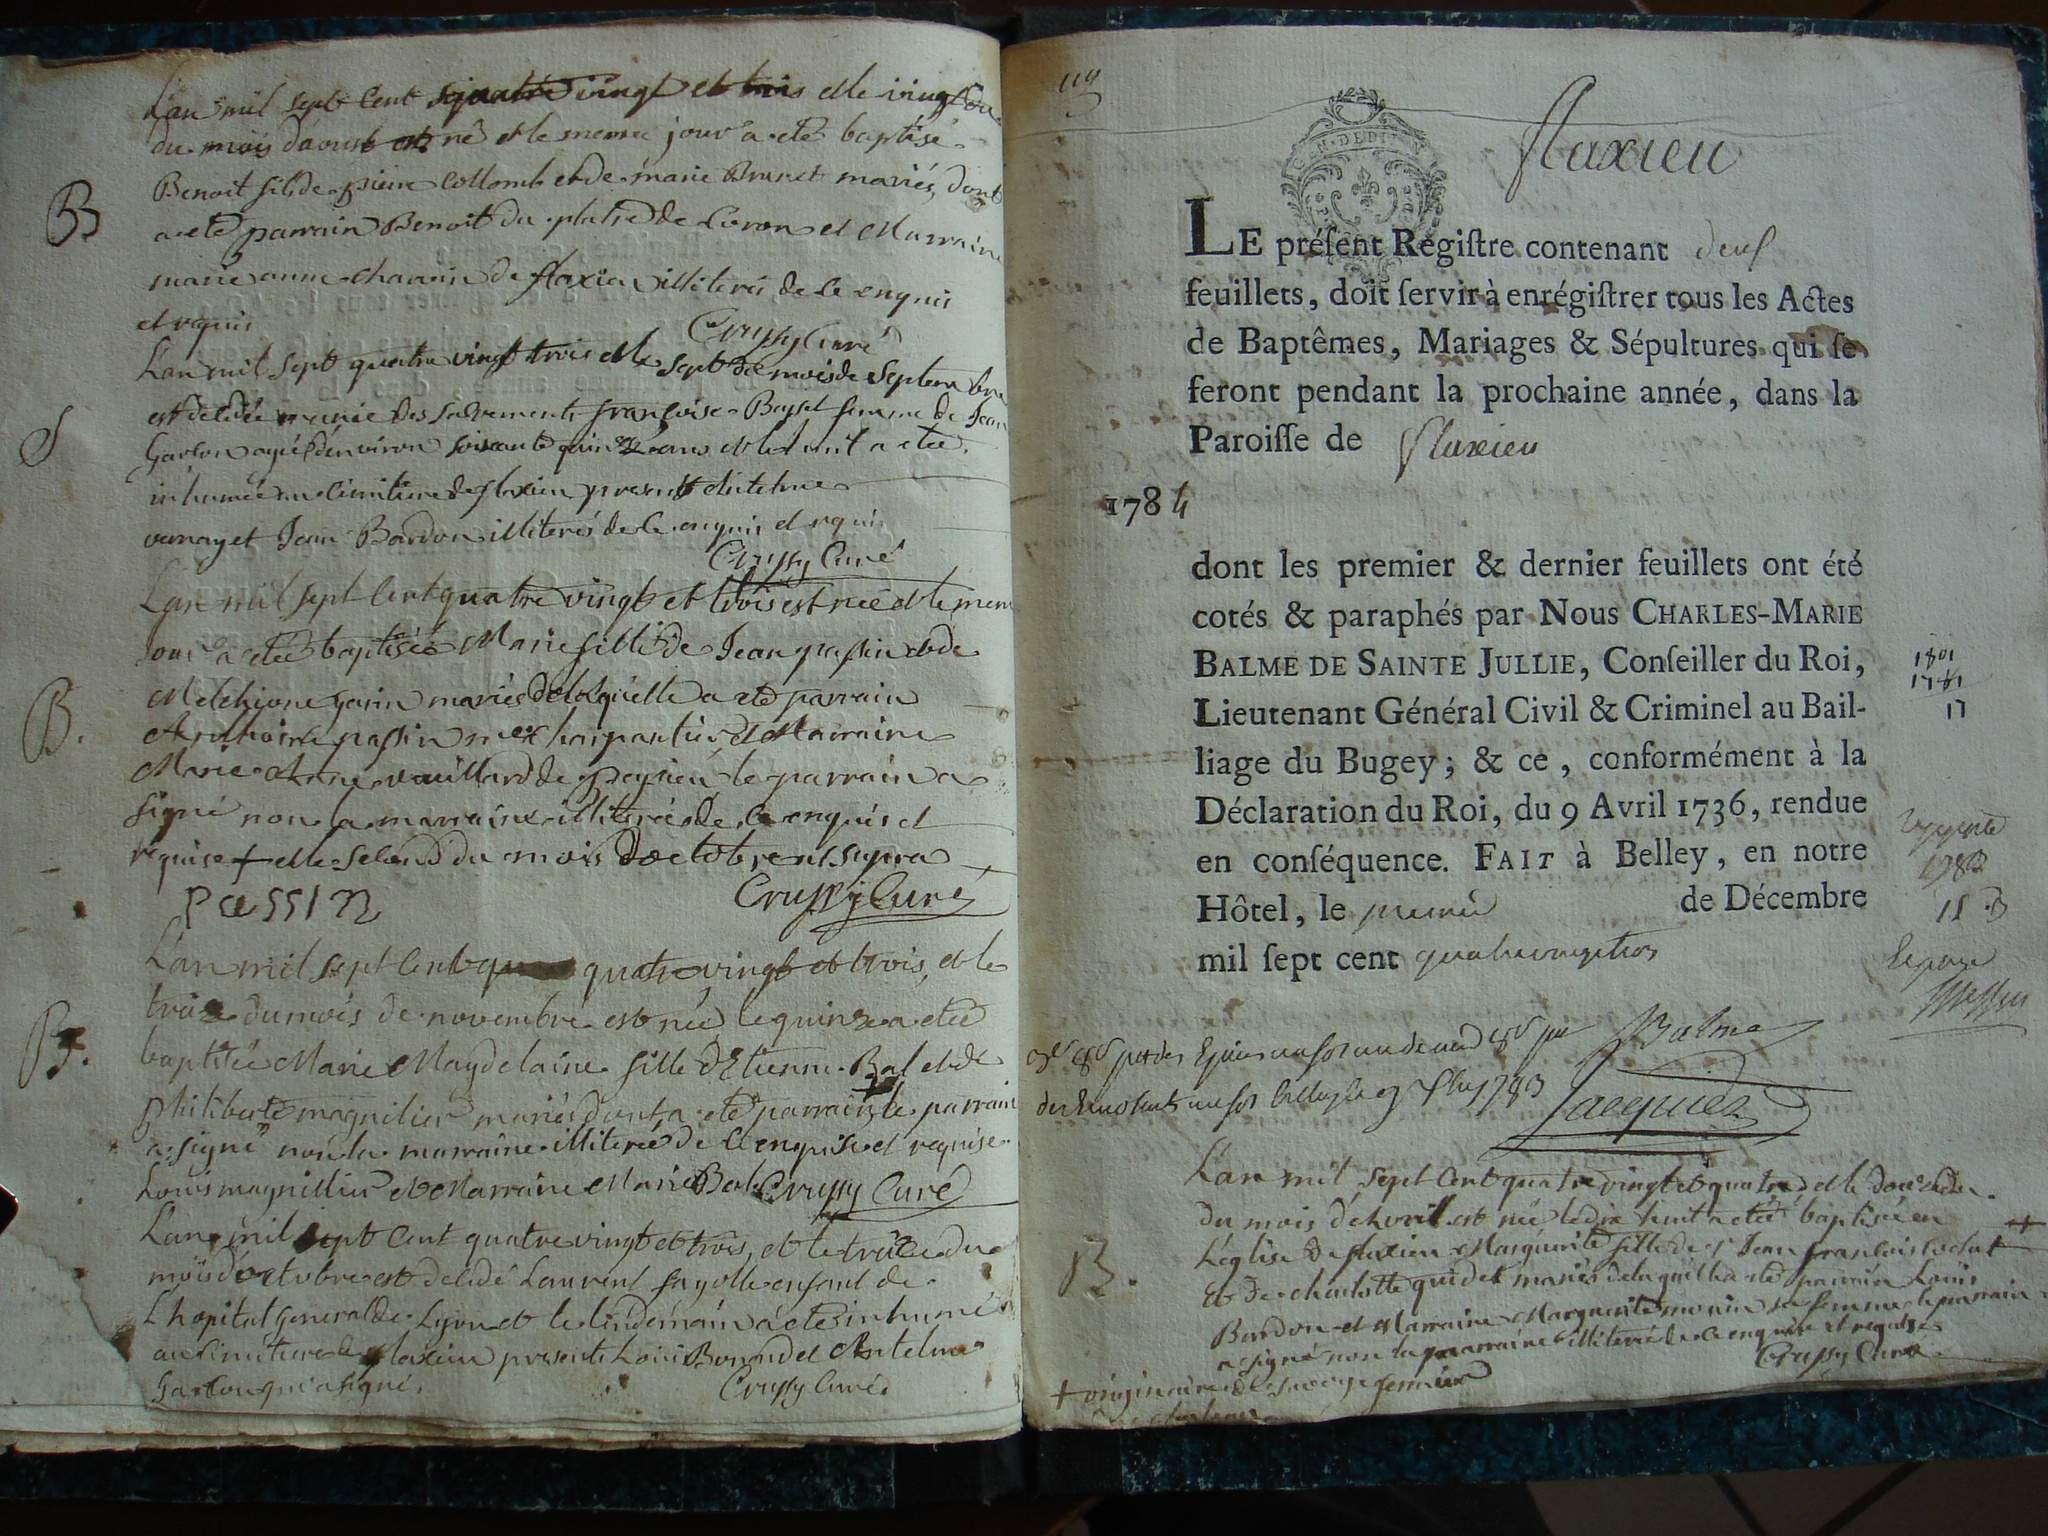 L'an mil sept cent quatre vingt et trois et le vingt
du mois daoust est né et le meme jour a eté baptisé
Benoit fils de pierre Collomb et de marie Brunet mariés, dont
a eté parrain Benoit du platre de Ceron et Marraine
marie anne charvin de flaxieu illiterés de ce enquis
et requis
Crussy Curé
L'an mil sept quatre vingt trois et le sept du mois de Septembre
est decedée munie des sacrements françoise Basset femme de Jean
Garbon agée denviron soixante quinze ans et le huit a eté
inhumée au cimitiere de flaxieu present Antelme
vernay et Jean Bardon illiterés de ce enquis et requis
Crussy Curé
L'an mil sept cent quatre vingt et trois est née et le meme
jour a eté baptisée Marie fille de Jean passin et de
Melchione garin mariés de laquelle a eté parrain
Anthoine passin et Marraine
Marie Anne vuillard de peysieu le parrain a
signé non la marraine illiterée de ce enquis et
requise + et le second du mois doctobre ut supra
passin
Crussy Curé
L'an mil sept cent quatre vingt et trois, et le
treize du mois de novembre est née le quinze a eté
baptisée Marie Magdelaine fille d'Etienne Bal et de
philiberte magnilier mariés dont a eté parrain le parrain
a signé non la marraine illiterée de ce enquise et requise
Louis magnillier et Marraine Marie Bal Crussy Curé
L'an mil sept cent quatre vingt et trois, et le treize du
mois d'octobre est decedé Laurent fayolle enfant de
L'hopital general de Lyon et le lendemain a eté inhumé
au cimitiere de flaxieu presents Louis Bonard et Antelme
Garbon qui a signé.
Crussy Curé
119
GEN. DE DIJON
flaxieu
LE préſent Regiſtre contenant deux
feuillets, doit ſervir à enrégiſtrer tous les Actes
de Baptêmes, Mariages & Sépultures qui ſe
feront pendant la prochaine année, dans la
Paroiſſe de flaxieu
1784
dont les premier & dernier feuillets ont été
cotés & paraphés par Nous CHARLES-MARIE
BALME DE SAINTE JULLIE, Conſeiller du Roi,
Lieutenant Général Civil & Criminel au Bail-
liage du Bugey ; & ce, conformément à la
Déclaration du Roi, du 9 Avril 1736, rendue
en conſéquence. FAIT à Belley, en notre
Hôtel, le premier de Décembre
mil ſept cent quatrevingttrois
1801
1781
17
Balme
1783
Jacquier
L'an mil sept cent quatre vingt et quatre et le
du mois d'Avril est née le dix huit a eté baptisée en
L'église de flaxieu Marguerite fille de sr Jean françois
et de charlotte quidet mariés de laquelle a eté parrain Louis
Bardon et Marraine Marguerite morin sa femme le parrain
a signé non la marraine illiterée de ce enquise et requise
Crussy Curé
+ originaire de
B
S
B.
B.
B.